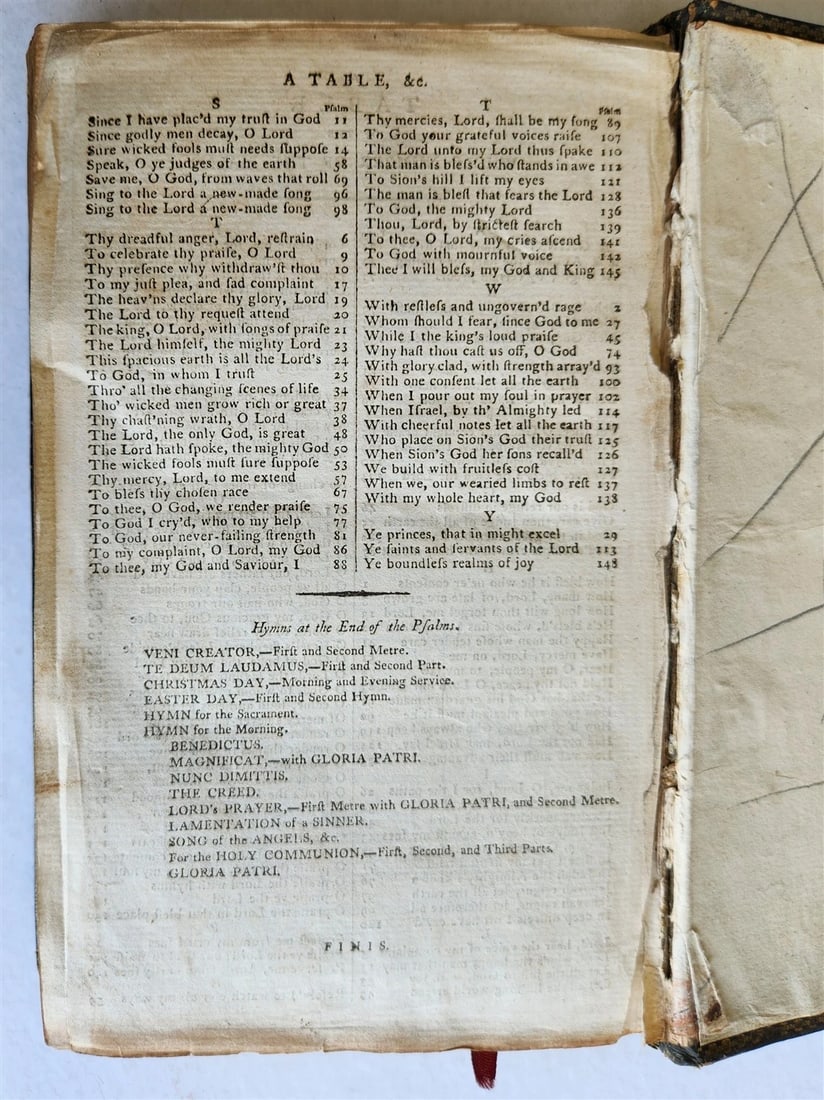 A TABLE, &c.
S
Pſalm
Since I have plac'd my truſt in God 11
Since godly men decay, O Lord 12
Sure wicked fools muſt needs ſuppoſe 14
Speak, O ye judges of the earth 58
Save me, O God, from waves that roll 69
Sing to the Lord a new-made ſong 96
Sing to the Lord a new-made ſong 98
T
Thy dreadful anger, Lord, reſtrain 6
To celebrate thy praiſe, O Lord 9
Thy preſence why withdraw'ſt thou 10
To my juſt plea, and ſad complaint 17
The heav'ns declare thy glory, Lord 19
The Lord to thy requeſt attend 20
The king, O Lord, with ſongs of praiſe 21
The Lord himſelf, the mighty Lord 23
This ſpacious earth is all the Lord's 24
To God, in whom I truſt 25
Thro' all the changing ſcenes of life 34
Tho' wicked men grow rich or great 37
Thy chaſt'ning wrath, O Lord 38
The Lord, the only God, is great 48
The Lord hath ſpoke, the mighty God 50
The wicked fools muſt ſure ſuppoſe 53
Thy mercy, Lord, to me extend 57
To bleſs thy choſen race 67
To thee, O God, we render praiſe 75
To God I cry'd, who to my help 77
To God, our never-failing ſtrength 81
To my complaint, O Lord, my God 86
To thee, my God and Saviour, I 88
T
Pſalm
Thy mercies, Lord, ſhall be my ſong 89
To God your grateful voices raiſe 107
The Lord unto my Lord thus ſpake 110
That man is bleſs'd who ſtands in awe 112
To Sion's hill I lift my eyes 121
The man is bleſt that fears the Lord 128
To God, the mighty Lord 136
Thou, Lord, by ſtricteſt ſearch 139
To thee, O Lord, my cries aſcend 141
To God with mournful voice 142
Thee I will bleſs, my God and King 145
W
With reſtleſs and ungovern'd rage 2
Whom ſhould I fear, ſince God to me 27
While I the king's loud praiſe 45
Why haſt thou caſt us off, O God 74
With glory clad, with ſtrength array'd 93
With one conſent let all the earth 100
When I pour out my ſoul in prayer 102
When Iſrael, by th' Almighty led 114
With cheerful notes let all the earth 117
Who place on Sion's God their truſt 125
When Sion's God her ſons recall'd 126
We build with fruitleſs coſt 127
When we, our wearied limbs to reſt 137
With my whole heart, my God 138
Y
Ye princes, that in might excel 29
Ye ſaints and ſervants of the Lord 113
Ye boundleſs realms of joy 148
Hymns at the End of the Pſalms.
VENI CREATOR,—Firſt and Second Metre.
TE DEUM LAUDAMUS,—Firſt and Second Part.
CHRISTMAS DAY,—Morning and Evening Service.
EASTER DAY,—Firſt and Second Hymn.
HYMN for the Sacrament.
HYMN for the Morning.
BENEDICTUS.
MAGNIFICAT,—with GLORIA PATRI.
NUNC DIMITTIS.
THE CREED.
LORD's PRAYER,—Firſt Metre with GLORIA PATRI, and Second Metre.
LAMENTATION of a SINNER.
SONG of the ANGELS, &c.
For the HOLY COMMUNION,—Firſt, Second, and Third Parts.
GLORIA PATRI.
FINIS.